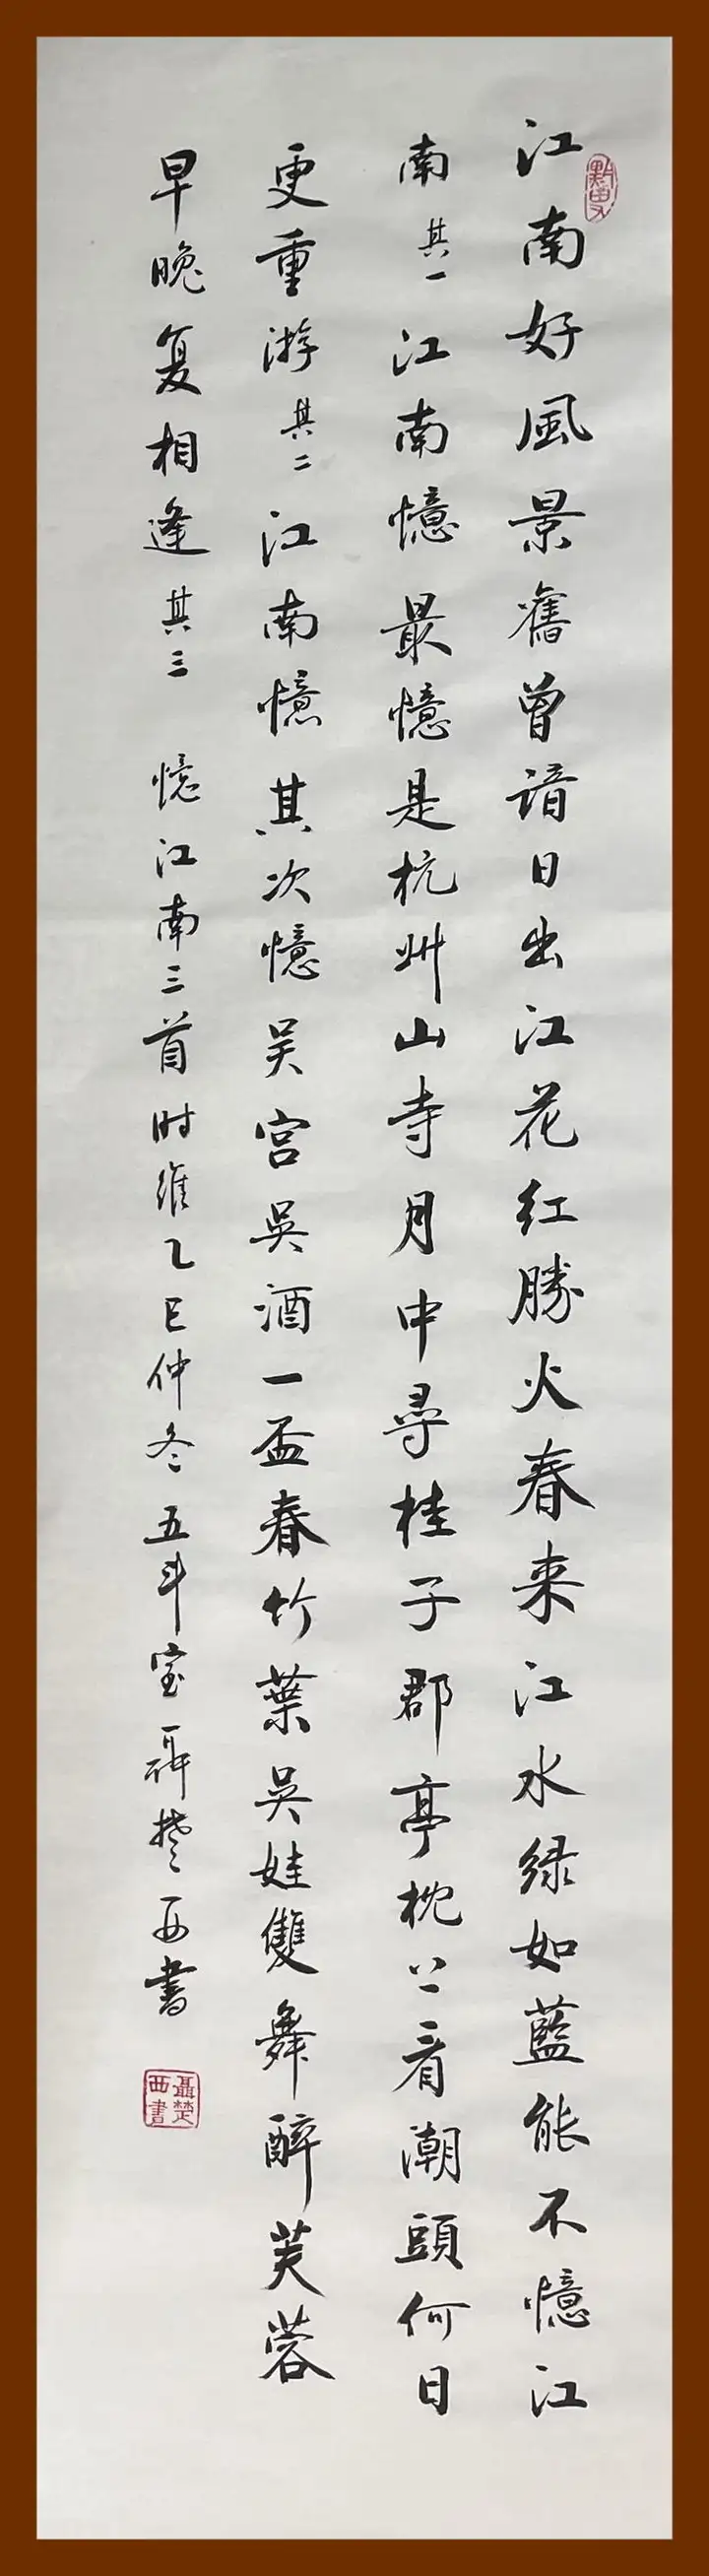 江南好風景舊曾諳日出江花红勝火春来江水绿如藍能不憶江
南其一江南憶最憶是杭州山寺月中尋桂子郡亭枕上看潮頭何日
更重游其二江南憶其次憶吴宫吳酒一盃春竹葉吳娃雙舞醉芙蓉
早晚复相逢其三 憶江南三首时维乙巳仲冬五斗室聶楚西書
聶楚西書